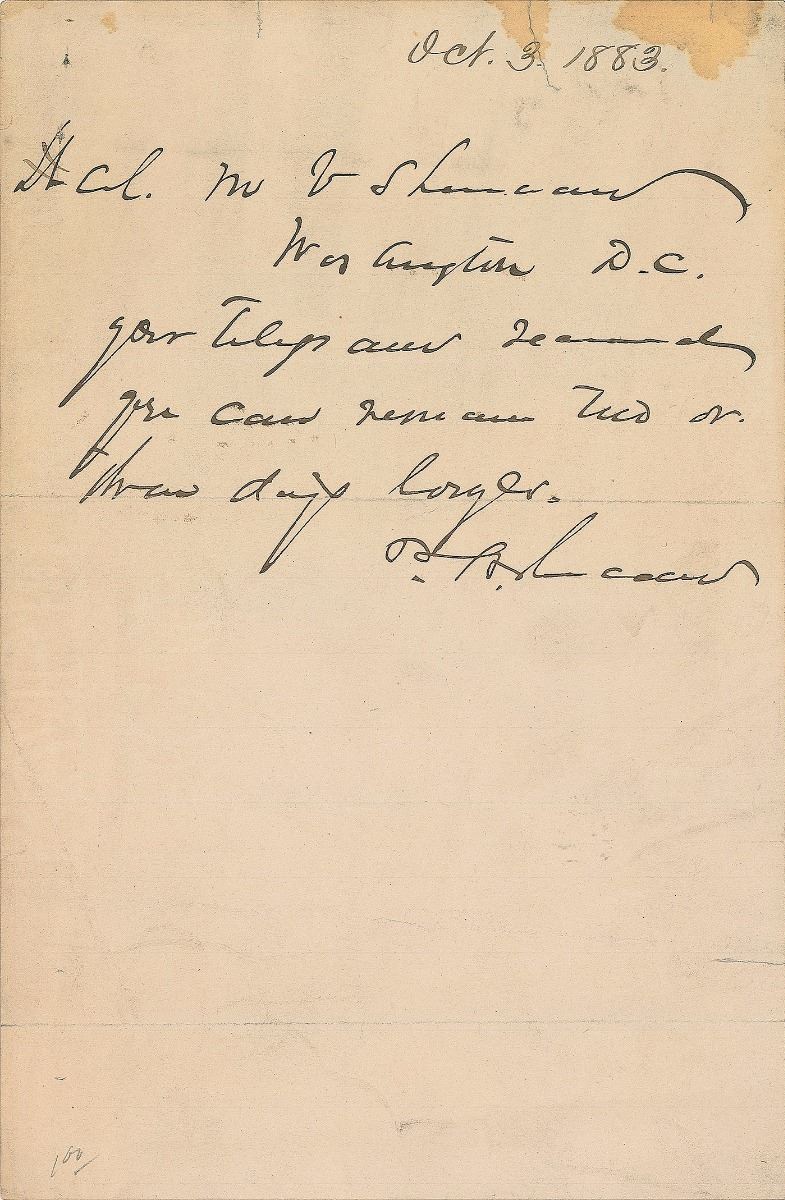 Oct. 3. 1883.
Lt Col. M V Sheridan
Washington D.C.
your Telegram received
you can remain two or
three days longer.
P. H. Sheridan
100